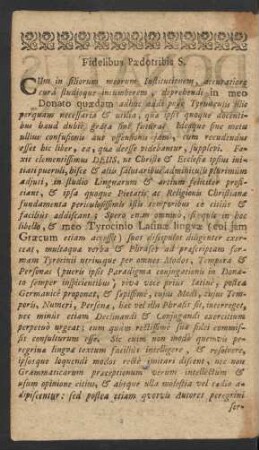 Fidelibus Pædotribis S.
CUm in filiorum meorum Institutionem, accuratiore
curâ studioque incumberem, deprehendi in meo
Donato quædam adhuc addi posse Tyrunculis istis
perquam necessaria & utilia, quæ ipsis quoque docenti-
bus haud dubiè grata sunt futura. Ideoque sine metu
ullius confusionis aut offensionis cum recudendus
esset hic liber, ea, quæ deesse videbantur, supplevi. Fa-
xit clementissimus DEUS, ut Christo & Ecclesiæ ipsius ini-
tiati pueruli, hisce & aliis salutaribus adminiculis plurimùm
adjuti, in studio Linguarum & artium feliciter profi-
ciant, & ipsa quoque Pietatis ac Religionis Christianæ
fundamenta periculosissimis istis temporibus eo citiùs &
faciliùs addiscant. Spero enim omninò, si quis in hoc
libello, & meo Tyrocinio Latinæ linguæ (vel jam
Græcum etiam accessit) suos discipulos diligenter exer-
ceat, multaque verba & Phrases ad præscriptam for-
mam Tyrocinii utriusque per omnes Modos, Tempora &
Personas (pueris ipsis Paradigma conjugationis in Dona-
to semper inspicientibus) viva voce priùs latinè, postea
Germanicè proponat, & sæpissimè, cujus Modi, cujus Tem-
poris, Numeri, Personæ, hæc vel illa Phrasis sit, interroget,
nec minùs etiam Declinandi & Conjugandi exercitium
perpetuò urgeat; eum quàm rectissimè suæ fidei commis-
sis consulturum esse. Sic enim non modò quemvis pe-
regrinæ linguæ textum faciliùs intelligere, & resolvere,
ipsosque loquendi modos rectè imitari discent, nec non
Grammaticarum præceptionum verum intellectum &
usum opinione citiùs, & absque ulla molestia vel tædio a-
dipiscentur: sed postea etiam quorvis Autores peregrini
ser-